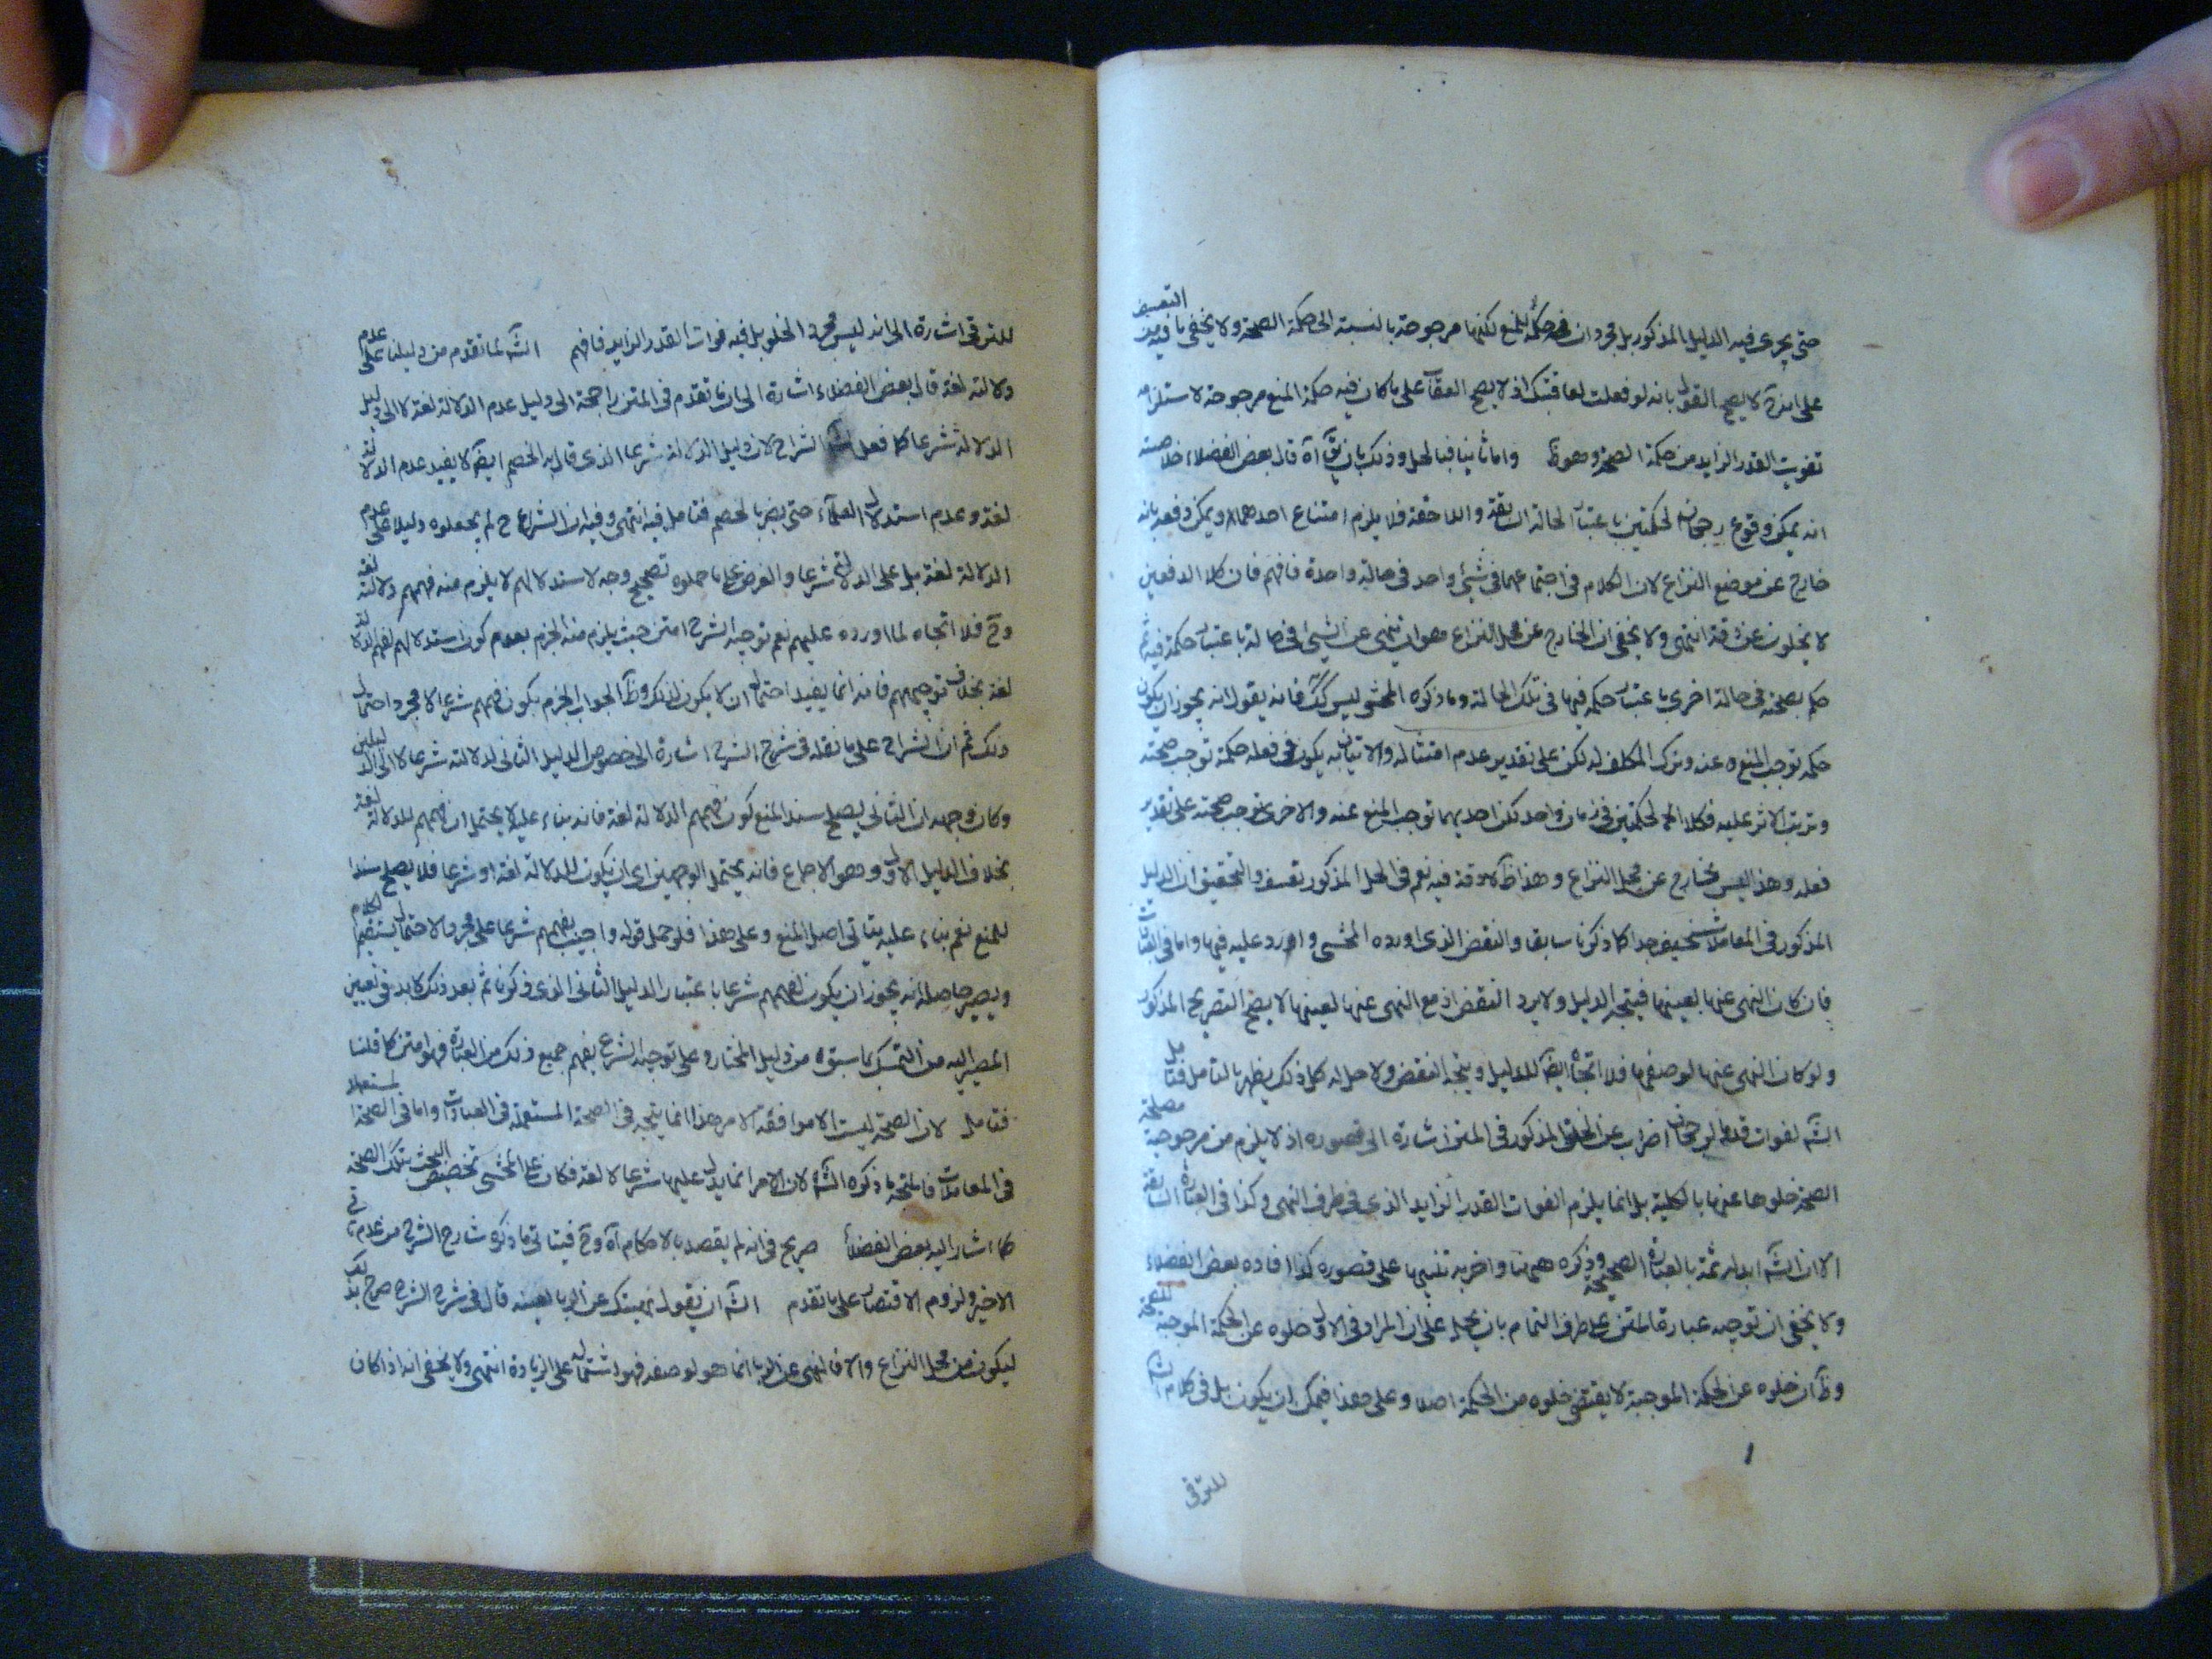 حتى يجرى فيه الدليل المذكور بل مجرد ان فيه حكمة للمنع لكنها مرجوحة بالنسبة الى حكمة الصحة ولا يخفى ما فيه من التعسف
على انه ح لا يصح القول بانه لو فعلت لعاقبتك اذ لا يصح العقاب على ما كان فيه حكمة المنع مرجوحة لاستلزامه
تفويت القدر الزايد من حكمة الصحة وهو ظ واما ثانيا فبالحل وذلك بان يق آه قال بعض الفضلاء خلاصته
انه يمكن وقوع رجحان الحكمتين باعتبار الحالة السابقة واللاحقة فلا يلزم امتناع احدهما ويمكن دفعه بانه
خارج عن موضع النزاع لان الكلام فى اجتماعهما فى شيئ واحد فى حالة واحدة فافهم فان كلا الدفعين
لا يخلون عن دقة انتهى ولا يخفى ان الخارج عن محل النزاع هو ان ينهى عن الشيئ فى حالة باعتبار حكمة فيه ثم
حكم بصحته فى حالة اخرى باعتبار حكمة فيها فى تلك الحالة وما ذكره المحشى ليس كك فانه يقول انه يجوز ان يكون
حكمة توجب المنع عنه وترك المكلف له لكن على تقدير عدم امتثاله والاتيان به يكون فى فعله حكمة توجب صحته
وترتب الاثر عليه فكلا الحكمتين فى زمان واحد لكن احديهما توجب المنع عنه والاخرى توجب صحته على تقدير
فعله وهذا ليس بخارج عن محل النزاع وهذا ظ لا دقة فيه نعم فى الحل المذكور تعسف والتحقيق ان الدليل
المذكور فى المعاملات سخيف جدا كما ذكرنا سابقا والنقض الذى اورده المحشى وارد عليه فيها واما فى العبادات
فان كان النهى عنها بعينها فيتجه الدليل ولا يرد النقض اذ مع النهى عنها لعينها لا يصح التصريح المذكور
ولو كان النهى عنها لوصفها فلا اتجاه ايضا للدليل ويتجه النقض ولا حل له كل ذلك يظهر بالتامل فتامل
الشه لفوات قدر الرجحان من مصلحة اضراب عن الخلو المذكور فى المتن اشارة الى قصوره اذ لا يلزم من مرجوحية
الصحة خلوها عنها بالكلية بل انما يلزم الفوات القدر الزايد الذى فى طرف النهى وكذا فى العبارة السابقة
الا ان الشه ابدله ثمة بالعبارة الصحيحة وذكره هيهنا واضربه تنبيها على قصوره كذا افاده بعض الفضلاء
ولا يخفى ان توجيه عبارة المتن على طرف التمام بان يحمل على ان المراد فى الاول خلوه عن الحكمة الموجبة للصحة
وظ ان خلوه عن الحكمة الموجبة لا يقتضى خلوه من الحكمة اصلا وعلى هذا فيمكن ان يكون بل فى كلام الشه
للترقى
للترقى اشارة الى انه ليس مجرد الخلو بل فيه فوات القدر الزايد فافهم الشه لما تقدم من دليلنا على عدم
دلالته لغة قال بعض الفضلاء اشارة الى ان ما تقدم فى المتن راجحة الى دليل عدم الدلالة لغة لا الى دليل
الدلالة شرعا كما فعل الشراح لان دليل الدلالة شرعا الذى قال به الخصم ايضا لا يفيد عدم الدلالة
لغة وعدم استدلال العلماء حتى يضر بالخصم فتامل فيه انتهى وفيه ان الشراح ح لم يجعلوه دليلا على عدم
الدلالة لغة بل على الدلالة شرعا والغرض على ما حملوه تصحيح وجه لاستدلالهم لا يلزم منه فهمهم دلالته لغة
وح فلا اتجاه لما اورده عليهم نعم توجيه الشرح امتن حيث يلزم منه الجزم بعدم كون استدلالهم لفهم الدلالة
لغة بخلاف توجيههم فانه انما يفيد احتمال ان لا يكون لذلك وظ الجواب الجزم بكون فهمهم شرعا لا مجرد احتمال
ذلك ثم ان الشراح على ما نقله فى شرح الشرح اشارة الى خصوص الدليل الثانى لدلالته شرعا لا الى الدليلين
وكان وجهه ان الثانى يصلح سندا لمنع كون فهمهم الدلالة لغة فانه بناء عليه لا يحتمل ان فهمهم للدلالة لغة
بخلاف الدليل الاول وهو الاجماع فانه يحتمل الوجهين اى ان يكون للدلالة لغة او شرعا فلا يصلح سندا
للمنع نعم بناء عليه يتاتى اصل المنع وعلى هذا فلو حمل قوله واجيب بفهمهم شرعا على مجرد الاحتمال يستقيم الكلام
ويصير حاصله انه يجوز ان يكون لفهمهم شرعا باعتبار الدليل الثانى الذى ذكرنا ثم بعد ذلك لا بد فى تعيين
المصير اليه من التمسك بما سبق من دليل المختار وعلى توجيه الشرح يفهم جميع ذلك من العبارة فهو امتن كما قلنا
فتامل لان الصحة ليست الا موافقة الامر هذا انما يتجه فى الصحة المستعملة فى العبادات واما فى الصحة المستعملة
فى المعاملات فالمتجه ما ذكره الشه لان الامر انما يدل عليها شرعا لا لغة فكان على المحشى تخصيص البحث بتلك الصحة
كما اشار اليه بعض الفضلاء صريح فى انه لم يقصد بالاحكام آه وح فيتاتى ما ذكره شارح الشرح من عدم
الاخير ولزوم الاقتصار على ما تقدم الشه ان يقول نهيتك عن الربا لعينه قال فى شرح الشرح صرح بذلك
ليكون من محل النزاع والا فالنهى عن الربا انما هو لوصفه فهو اشتماله على الزيادة انتهى ولا يخفى انه اذا كان